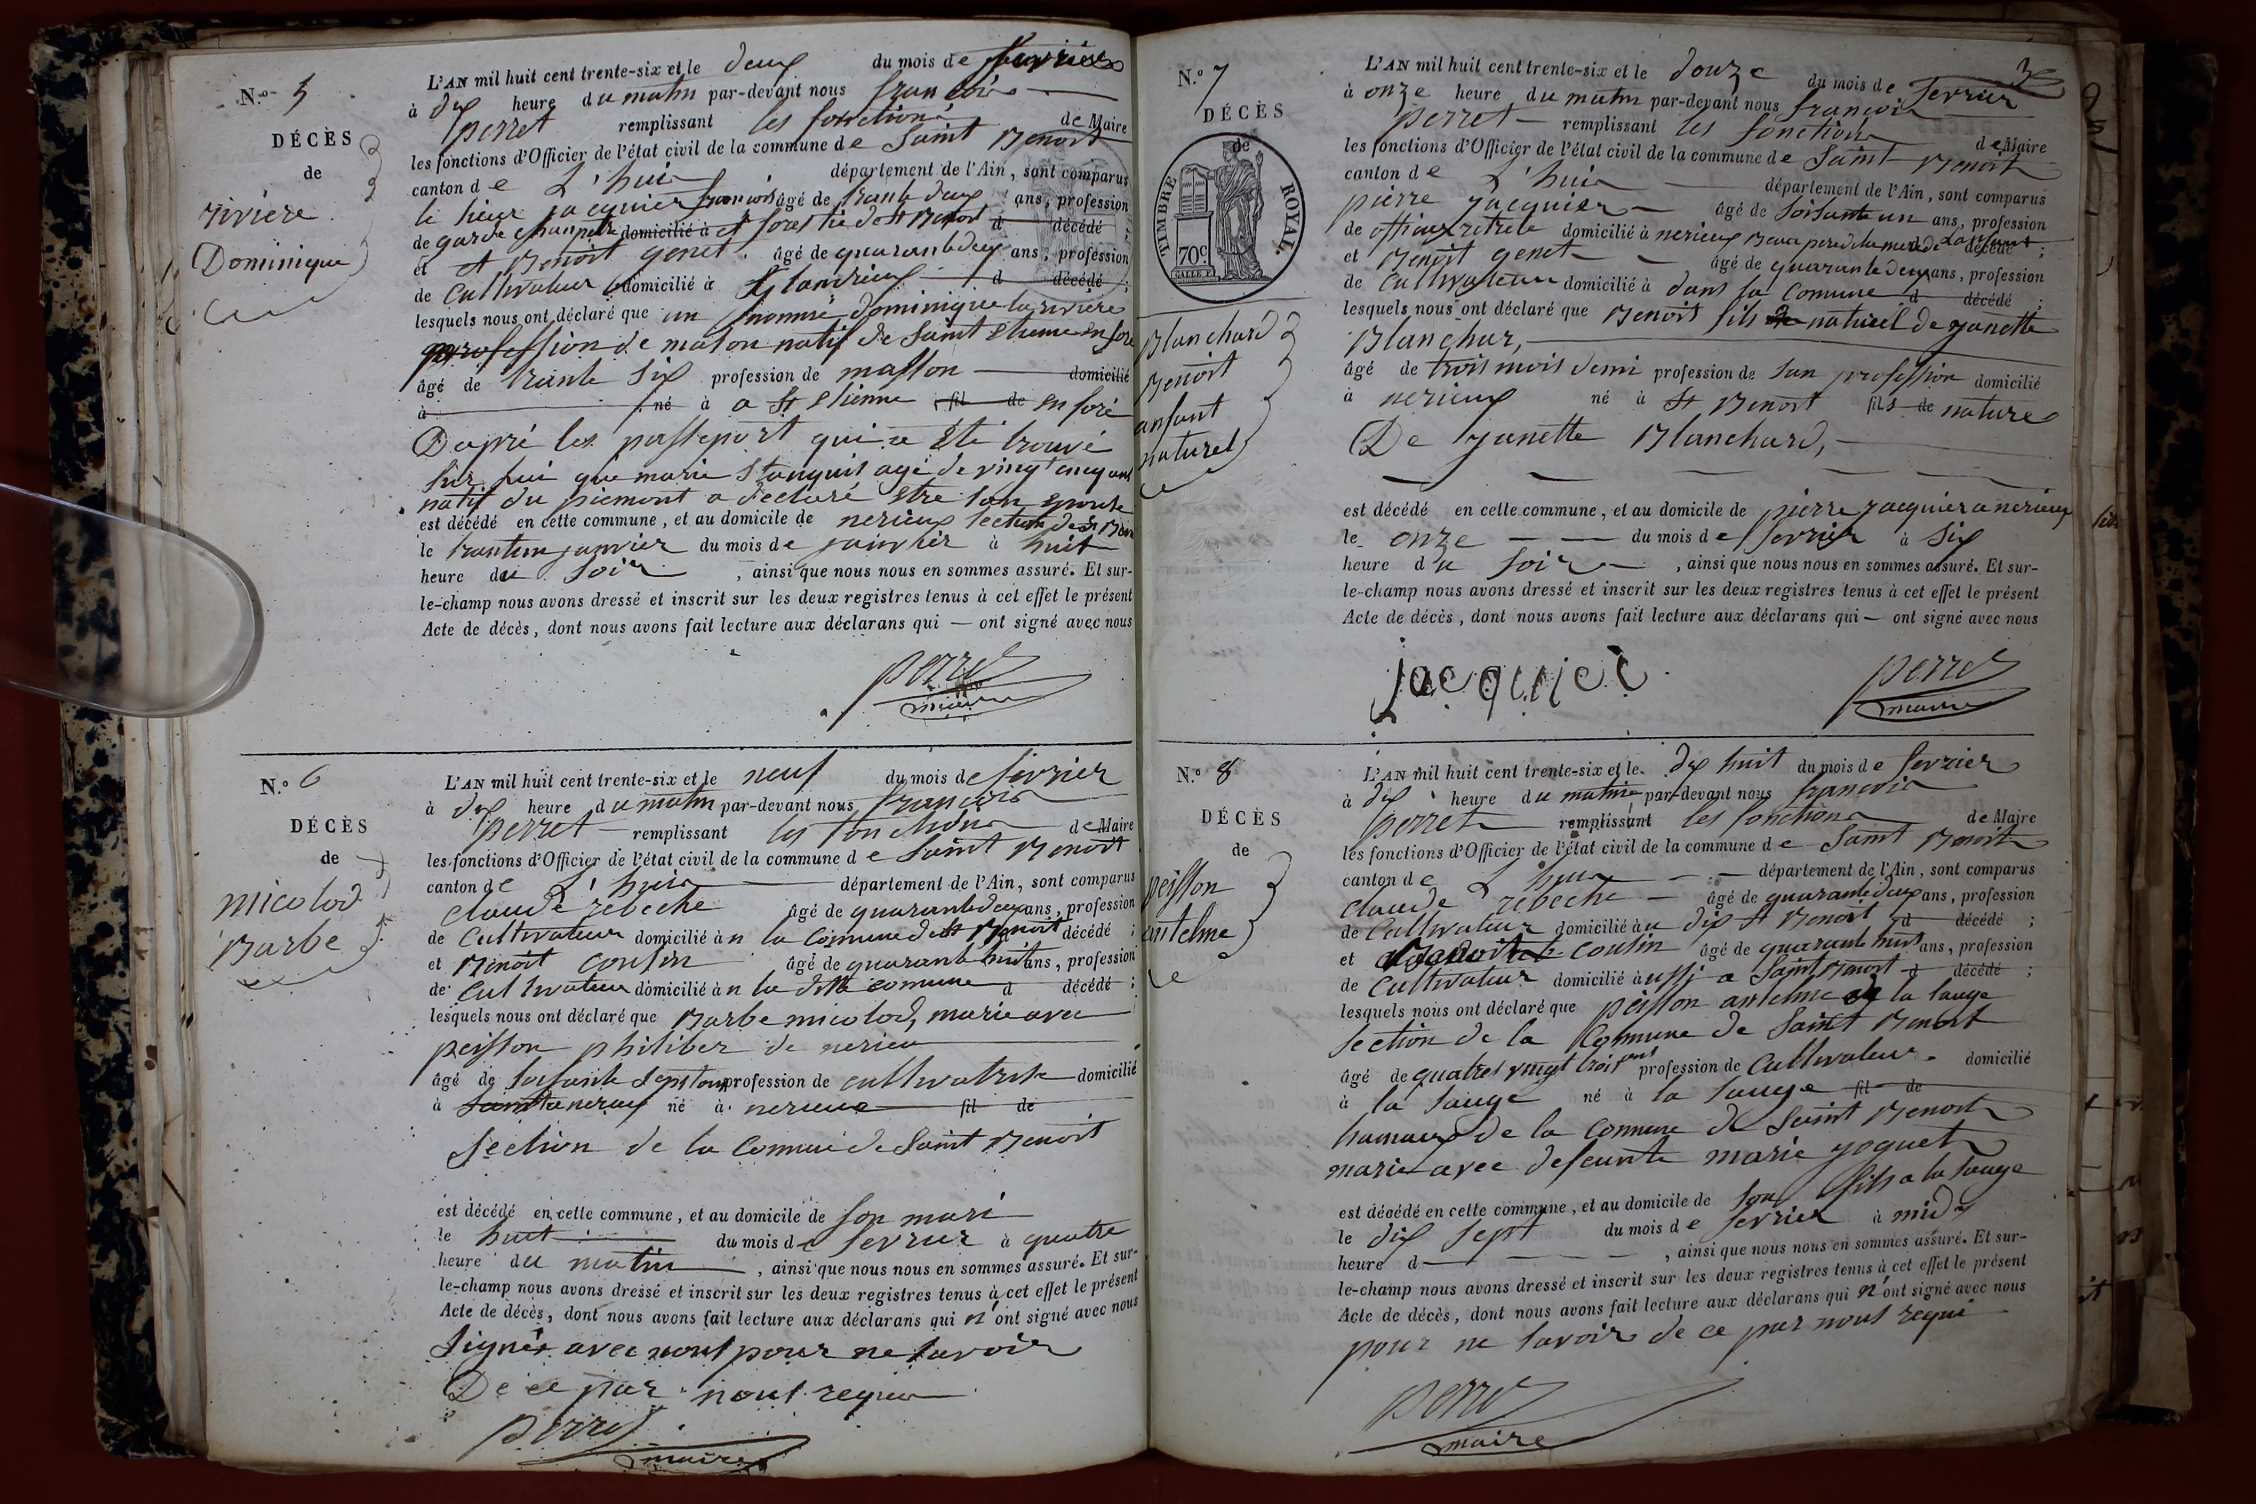 N.o 5
DÉCÈS
de
rivière
Dominique
L'AN mil huit cent trente-six et le deux du mois de fevrier
à dix heure du matin par-devant nous francois
perret remplissant les fonctions de Maire
les fonctions d'Officier de l'état civil de la commune de Saint Benoit
canton de L'huis département de l'Ain, sont comparus
le sieur jacquier francois âgé de trante deux ans, profession
de garde champetre domicilié à et forestié de st Benoit d décédé
et et Benoit genet âgé de quarante deux ans, profession
de cultivateur domicilié à Glandrieu d décédé ;
lesquels nous ont déclaré que un nommé dominique la rivière
profession de mason natif de Saint Etienne en foré
âgé de trante six profession de masson domicilié
à né à a St etienne fil de en foré
Dapré les passeport qui a été trouvé
sur lui que marie agé de vingt cinq ans
natif du piemont a declaré etre son epouse
est décédé en cette commune, et au domicile de nerieux section de st Benoit
le trante un janvier du mois de janvier à huit
heure du soir, ainsi que nous nous en sommes assuré. Et sur-
le-champ nous avons dressé et inscrit sur les deux registres tenus à cet effet le présent
Acte de décès, dont nous avons fait lecture aux déclarans qui — ont signé avec nous
perret
maire
N.o 6
DÉCÈS
de
micolod
Barbe
L'AN mil huit cent trente-six et le neuf du mois de fevrier
à dix heure du matin par-devant nous francois
perret remplissant les fonctions de Maire
les fonctions d'Officier de l'état civil de la commune de Saint Benoit
canton de L'huis département de l'Ain, sont comparus
claude rebeche âgé de quarante deux ans, profession
de Cultivateur domicilié àn la commune de st Benoit décédé ;
et Benoit cousin âgé de quarante huit ans, profession
de cultivateur domicilié àn la dite commune d décédé ;
lesquels nous ont déclaré que Barbe micolod, marie avec
peisson philiber de nerieu
âgé de soisante sept ans profession de cultivatrise domicilié
à Saint a nerieux né à nerieux fil de
Section de la Commune de Saint Benoit
est décédé en cette commune, et au domicile de son mari
le huit du mois de fevrier à quatre
heure du matin, ainsi que nous nous en sommes assuré. Et sur-
le-champ nous avons dressé et inscrit sur les deux registres tenus à cet effet le présent
Acte de décès, dont nous avons fait lecture aux déclarans qui n'ont signé avec nous
Signér avec nous pour ne savoir
De ce par nous requi
perret
maire
3e
N.o 7
DÉCÈS
de
TIMBRE ROYAL.
70c.
Blanchard
Benoit
anfant
naturel
L'AN mil huit cent trente-six et le douze du mois de fevrier
à onze heure du matin par-devant nous francois
perret remplissant les fonctions de Maire
les fonctions d'Officier de l'état civil de la commune de Saint Benoit
canton de L'huis département de l'Ain, sont comparus
pierre jacquier âgé de soisante un ans, profession
de officier retrete domicilié à nerieux Beau pere de la mere de Lanfant décédé ;
et Benoit genet âgé de quarante deux ans, profession
de Cultivateur domicilié à dans la Comune d décédé ;
lesquels nous ont déclaré que Benoit fils naturel de janette
Blanchar,
âgé de trois mois demi profession de san profession domicilié
à nerieux né à St Benoit fils de nature
De janette Blanchard,
est décédé en cette commune, et au domicile de pierre jacquier a nerieux
le onze du mois de fevrier à six
heure du soir, ainsi que nous nous en sommes assuré. Et sur-
le-champ nous avons dressé et inscrit sur les deux registres tenus à cet effet le présent
Acte de décès, dont nous avons fait lecture aux déclarans qui — ont signé avec nous
jacquier
perret
maire
N.o 8
DÉCÈS
de
peisson
antelme
L'AN mil huit cent trente-six et le dix huit du mois de fevrier
à dix heure du matin par-devant nous francois
perret remplissant les fonctions de Maire
les fonctions d'Officier de l'état civil de la commune de Saint Benoit
canton de L'huis département de l'Ain, sont comparus
claude rebeche âgé de quarante deux ans, profession
de Cultivateur domicilié àu dit St Benoit d décédé ;
et cousin âgé de quarante huit ans, profession
de Cultivateur domicilié àussi a Saint Benoit d décédé ;
lesquels nous ont déclaré que peisson antelme de la sauge
section de la Commune de Saint Benoit
âgé de quatres vingt trois ans profession de Cultivateur domicilié
à la sauge né à la sauge fil de
hamaux de la Commune de Saint Benoit
marie avec defeunte marie joguet
est décédé en cette commune, et au domicile de son fils a la sauge
le dix sept du mois de fevrier à midy
heure d, ainsi que nous nous en sommes assuré. Et sur-
le-champ nous avons dressé et inscrit sur les deux registres tenus à cet effet le présent
Acte de décès, dont nous avons fait lecture aux déclarans qui n'ont signé avec nous
pour ne savoir de ce par nous requi
perret
maire